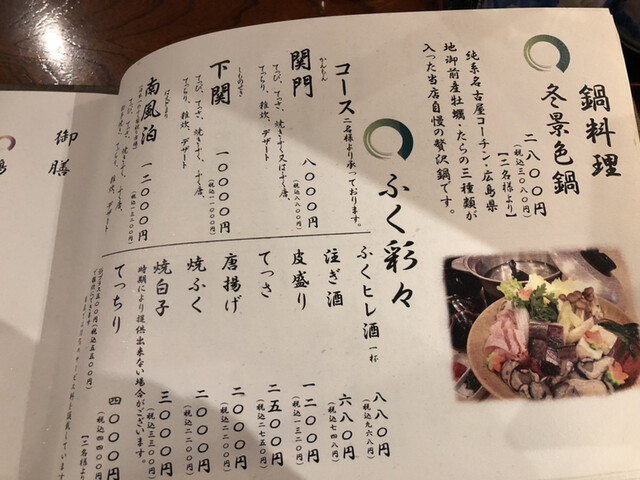 鍋料理
冬景色鍋
二八〇〇円
(税込三〇八〇円)
【二名様より】
純系名古屋コーチン・広島県
地御前産牡蠣・たらの三種類が
入った当店自慢の贅沢鍋です。
ふく彩々
コース 二名様より承っております。
かんもん
関門
八〇〇〇円
(税込八八〇〇円)
てっぴ、てっさ、焼きふく又はふく唐、
てっちり、雑炊、デザート
しものせき
下関
一〇〇〇〇円
(税込一一〇〇〇円)
てっぴ、てっさ、焼きふく、ふく唐、
てっちり、雑炊、デザート
はえどまり
南風泊
一二〇〇〇円
(税込一三二〇〇円)
てっぴ、てっさ、焼きふく、ふく唐、
てっちり、雑炊、デザート
ふくヒレ酒 一杯
八八〇円
(税込九六八円)
注ぎ酒
六八〇円
(税込七四八円)
皮盛り
一二〇〇円
(税込一三二〇円)
てっさ
二五〇〇円
(税込二七五〇円)
唐揚げ
二〇〇〇円
(税込二二〇〇円)
焼ふく
二〇〇〇円
(税込二二〇〇円)
焼白子
三〇〇〇円
(税込三三〇〇円)
時期により提供出来ない場合がございます。
てっちり
四〇〇〇円
(税込四四〇〇円)
【二名様より
プラス五〇〇円(税込五五〇円)
御膳